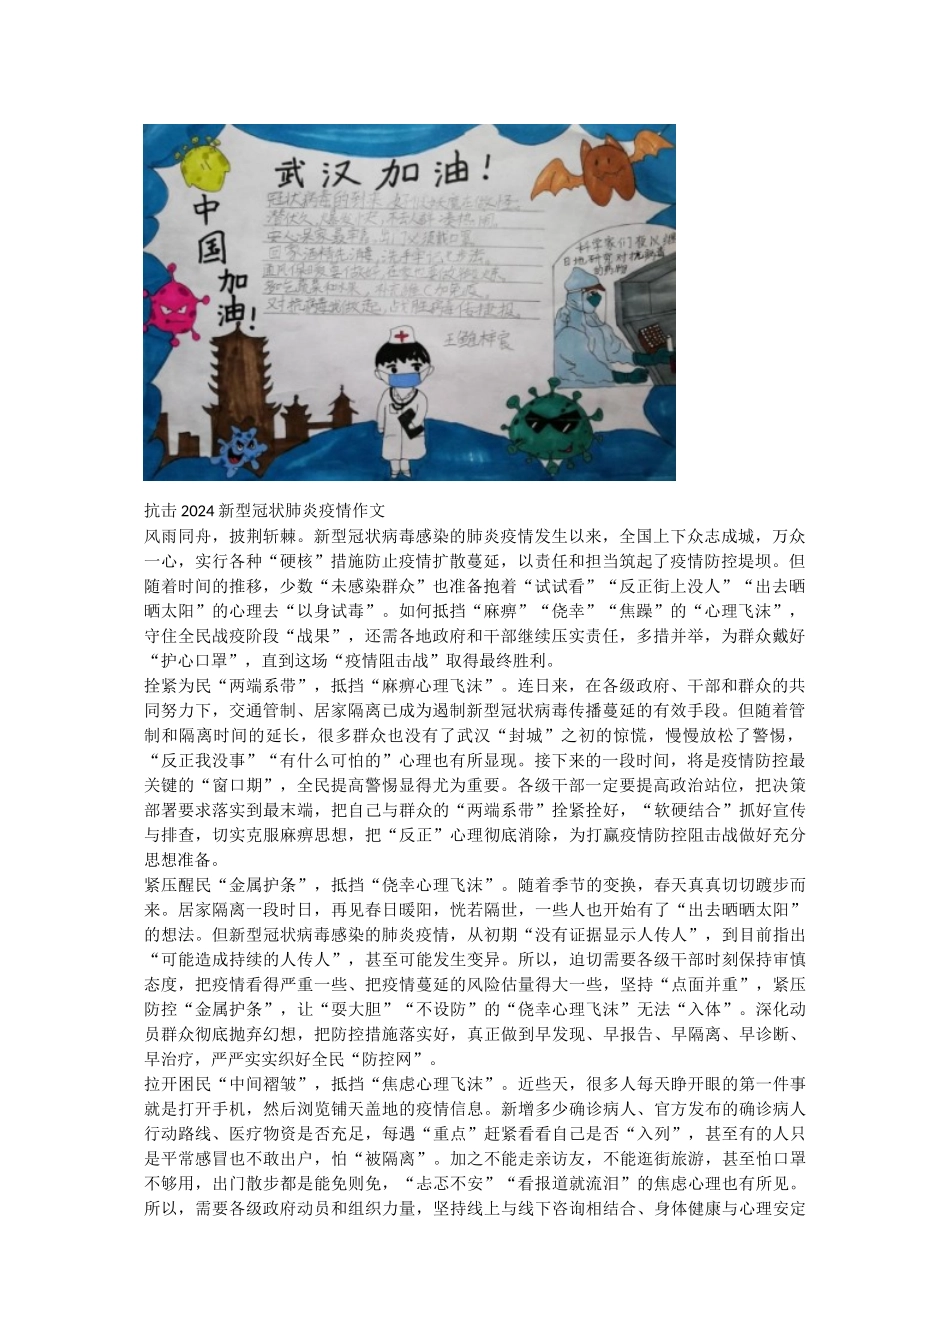 武汉加油！
中国加油！
科学家们夜以继
日地研究对抗病毒
的药物
冠状病毒的到来
抗击 2024 新型冠状肺炎疫情作文
风雨同舟，披荆斩棘。新型冠状病毒感染的肺炎疫情发生以来，全国上下众志成城，万众
一心，实行各种“硬核”措施防止疫情扩散蔓延，以责任和担当筑起了疫情防控堤坝。但
随着时间的推移，少数“未感染群众”也准备抱着“试试看”“反正街上没人”“出去晒
晒太阳”的心理去“以身试毒”。如何抵挡“麻痹”“侥幸”“焦躁”的“心理飞沫”，
守住全民战疫阶段“战果”，还需各地政府和干部继续压实责任，多措并举，为群众戴好
“护心口罩”，直到这场“疫情阻击战”取得最终胜利。
拴紧为民“两端系带”，抵挡“麻痹心理飞沫”。连日来，在各级政府、干部和群众的共
同努力下，交通管制、居家隔离已成为遏制新型冠状病毒传播蔓延的有效手段。但随着管
制和隔离时间的延长，很多群众也没有了武汉“封城”之初的惊慌，慢慢放松了警惕，
“反正我没事”“有什么可怕的”心理也有所显现。接下来的一段时间，将是疫情防控最
关键的“窗口期”，全民提高警惕显得尤为重要。各级干部一定要提高政治站位，把决策
部署要求落实到最末端，把自己与群众的“两端系带”拴紧拴好，“软硬结合”抓好宣传
与排查，切实克服麻痹思想，把“反正”心理彻底消除，为打赢疫情防控阻击战做好充分
思想准备。
紧压醒民“金属护条”，抵挡“侥幸心理飞沫”。随着季节的变换，春天真真切切踱步而
来。居家隔离一段时日，再见春日暖阳，恍若隔世，一些人也开始有了“出去晒晒太阳”
的想法。但新型冠状病毒感染的肺炎疫情，从初期“没有证据显示人传人”，到目前指出
“可能造成持续的人传人”，甚至可能发生变异。所以，迫切需要各级干部时刻保持审慎
态度，把疫情看得严重一些、把疫情蔓延的风险估量得大一些，坚持“点面并重”，紧压
防控“金属护条”，让“耍大胆”“不设防”的“侥幸心理飞沫”无法“入体”。深化动
员群众彻底抛弃幻想，把防控措施落实好，真正做到早发现、早报告、早隔离、早诊断、
早治疗，严严实实织好全民“防控网”。
拉开困民“中间褶皱”，抵挡“焦虑心理飞沫”。近些天，很多人每天睁开眼的第一件事
就是打开手机，然后浏览铺天盖地的疫情信息。新增多少确诊病人、官方发布的确诊病人
行动路线、医疗物资是否充足，每遇“重点”赶紧看看自己是否“入列”，甚至有的人只
是平常感冒也不敢出户，怕“被隔离”。加之不能走亲访友，不能逛街旅游，甚至怕口罩
不够用，出门散步都是能免则免，“忐忑不安”“看报道就流泪”的焦虑心理也有所见。
所以，需要各级政府动员和组织力量，坚持线上与线下咨询相结合、身体健康与心理安定